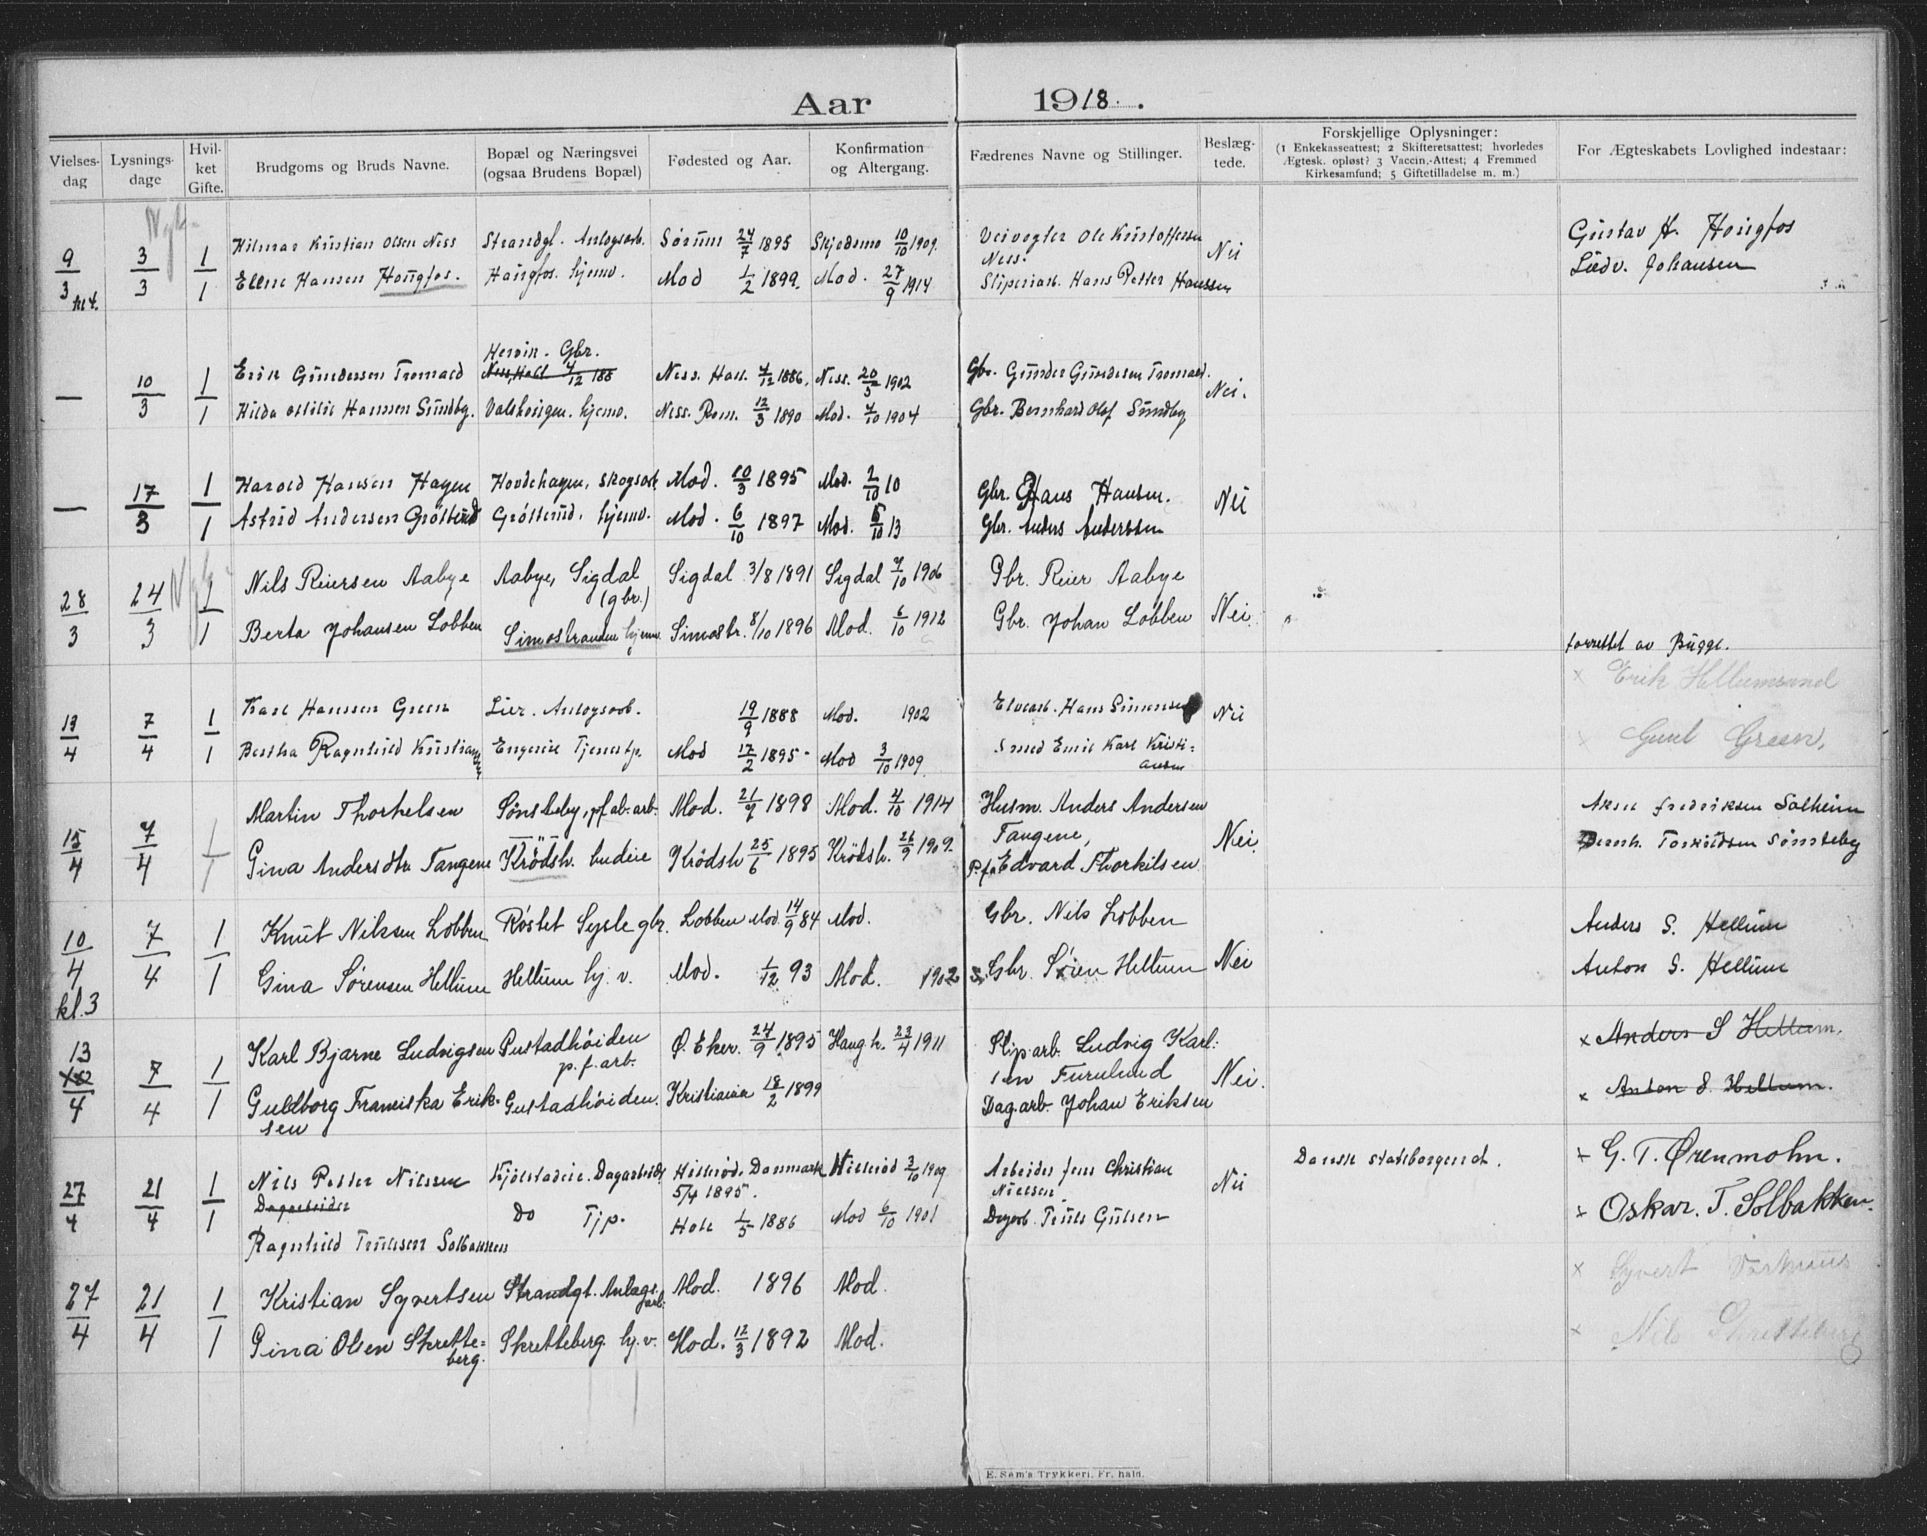 Aar 1918.
Vielses-dag
Lysnings-dage
Hvil-ket Gifte.
Brudgoms og Bruds Navne.
Bopæl og Næringsvei (ogsaa Brudens Bopæl)
Fødested og Aar.
Konfirmation og Altergang.
Fædrenes Navne og Stillinger.
Beslæg-tede.
Forskjellige Oplysninger: (1 Enkekasseattest; 2 Skifteretsattest; hvorledes Ægtesk. opløst? 3 Vaccin.-Attest; 4 Fremmed Kirkesamfund; 5 Giftetilladelse m. m.)
For Ægteskabets Lovlighed indestaar:
9/3 3/3 1/1 Hilmar Kristian Olsen Ness Strandgt. Anlegsarb. Sørum 24/7 1895 Skjedsmo 10/10 1909. Veivogter Ole Kristoffersen Ness. Nei Gustav H. Hougfos
Elene Hansen Hougfos. Hougfos. hjemv. Mod 1/2 1899. Mod. 27/9 1914 Sliperiarb. Hans Petter Hanssen Ludv. Johansen
— 10/3 1/1 Erik Gundersen Tromald Hersin. Gbr. Ness. Hall. 4/12 1886. Ness. 20/5 1902 Gbr. Gunder Gundersen Tromald. Nei.
Hilda Otilie Hansen Sundby. Valstuigen. hjemv. Ness. Rom. 12/3 1890 Mod. 4/10 1904 Gbr. Bernhard Olof Sundby
— 17/3 1/1 Harald Hansen Hagen Hovdehagen, skogsarb. Mod. 10/3 1895 Mod. 2/10 10 Gbr. Hans Hansen. Nei
Astrid Andersen Grøtterud Grøtterud. hjemv. Mod. 6/10 1897 Mod. 5/10 13 Gbr. Anders Anderssen
28/3 24/3 1/1 Nils Reiersen Aabye Aabye, Sigdal (gbr.) Sigdal 3/8 1891 Sigdal 7/10 1906 Gbr. Reier Aabye Nei
Berta Johansen Lobben Simostranden hjemv Simostr. 8/10 1896 Mod. 6/10 1912 Gbr. Johan Lobben
forrettet av Bugge.
13/4 7/4 1/1 Karl Hanssen Green Lier. Anlegsarb. 19/9 1888 Mod. 1902 Elvearb. Hans Simensen Nei × Erik Hellumsand
Bertha Ragnhild Kristiansen Engerie Tjenestp. Mod 17/2 1895 Mod 3/10 1909. Smed Emil Karl Kristiansen Green,
15/4 7/4 1/1 Martin Thorkelsen Sønsteby, pf.ab.arb. Mod. 21/7 1898 Mod. 4/10 1914 Husm. Anders Andersen Tangene, Nei. Fredriksen Solheim
Gina Andersdtr Tangene Krødsh. budeie Krødsh 25/6 1895 Krødsh. 26/9 1909. P.fa Edvard Thorkilsen Bernh. Torkildsen Sønsteby
10/4 kl. 3 7/4 1/1 Knut Nilsen Lobben Røstet Sysle gbr. Lobben Mod. 14/9 84 Mod. Gbr. Nils Lobben Nei Anders S. Hellum
Gina Sørensen Hellum Hellum hj. v. Mod. 1/12 93 Mod. 1902 Gbr. Søren Hellum Anton S. Hellum
13/4 7/4 1/1 Karl Bjarne Ludvigsen Gustadhøiden p.f.arb. Ø. Eker. 24/9 1895 Haug k. 23/4 1911 Slip.arb. Ludvig Karlsen Furulund Nei. × Anders S Hellum.
Guldborg Franciska Eriksen Gustadhøiden. Kristiania 18/2 1899 Dag.arb. Johan Eriksen × Anton S. Hellum.
27/4 21/4 1/1 Nils Petter Nilssen Dagarbeider Kjølstadeie. Dagarbeider Hillerød. Danmark 5/4 1895. Hillerød 3/10 1909 Arbeider Jens Christian Nielsen Nei Dansk statsborgerret. G. T. Ørenmohn.
Ragnhild Trulsen Solbakken Do Tjp. Hole 1/5 1886 Mod 6/10 1901 Dagarb. Truls Gulsen Oskar. T. Solbakken.
27/4 21/4 1/1 Kristian Syvertsen Strandgt. Anlægsarb. Mod. 1896 Mod. × Syvert
Gina Olsen Skretteberg. Skretteberg hj.v. Mod. 12/3 1892 Mod. × Nils Skretteberg
E. Sem's Trykkeri, Fr.hald.